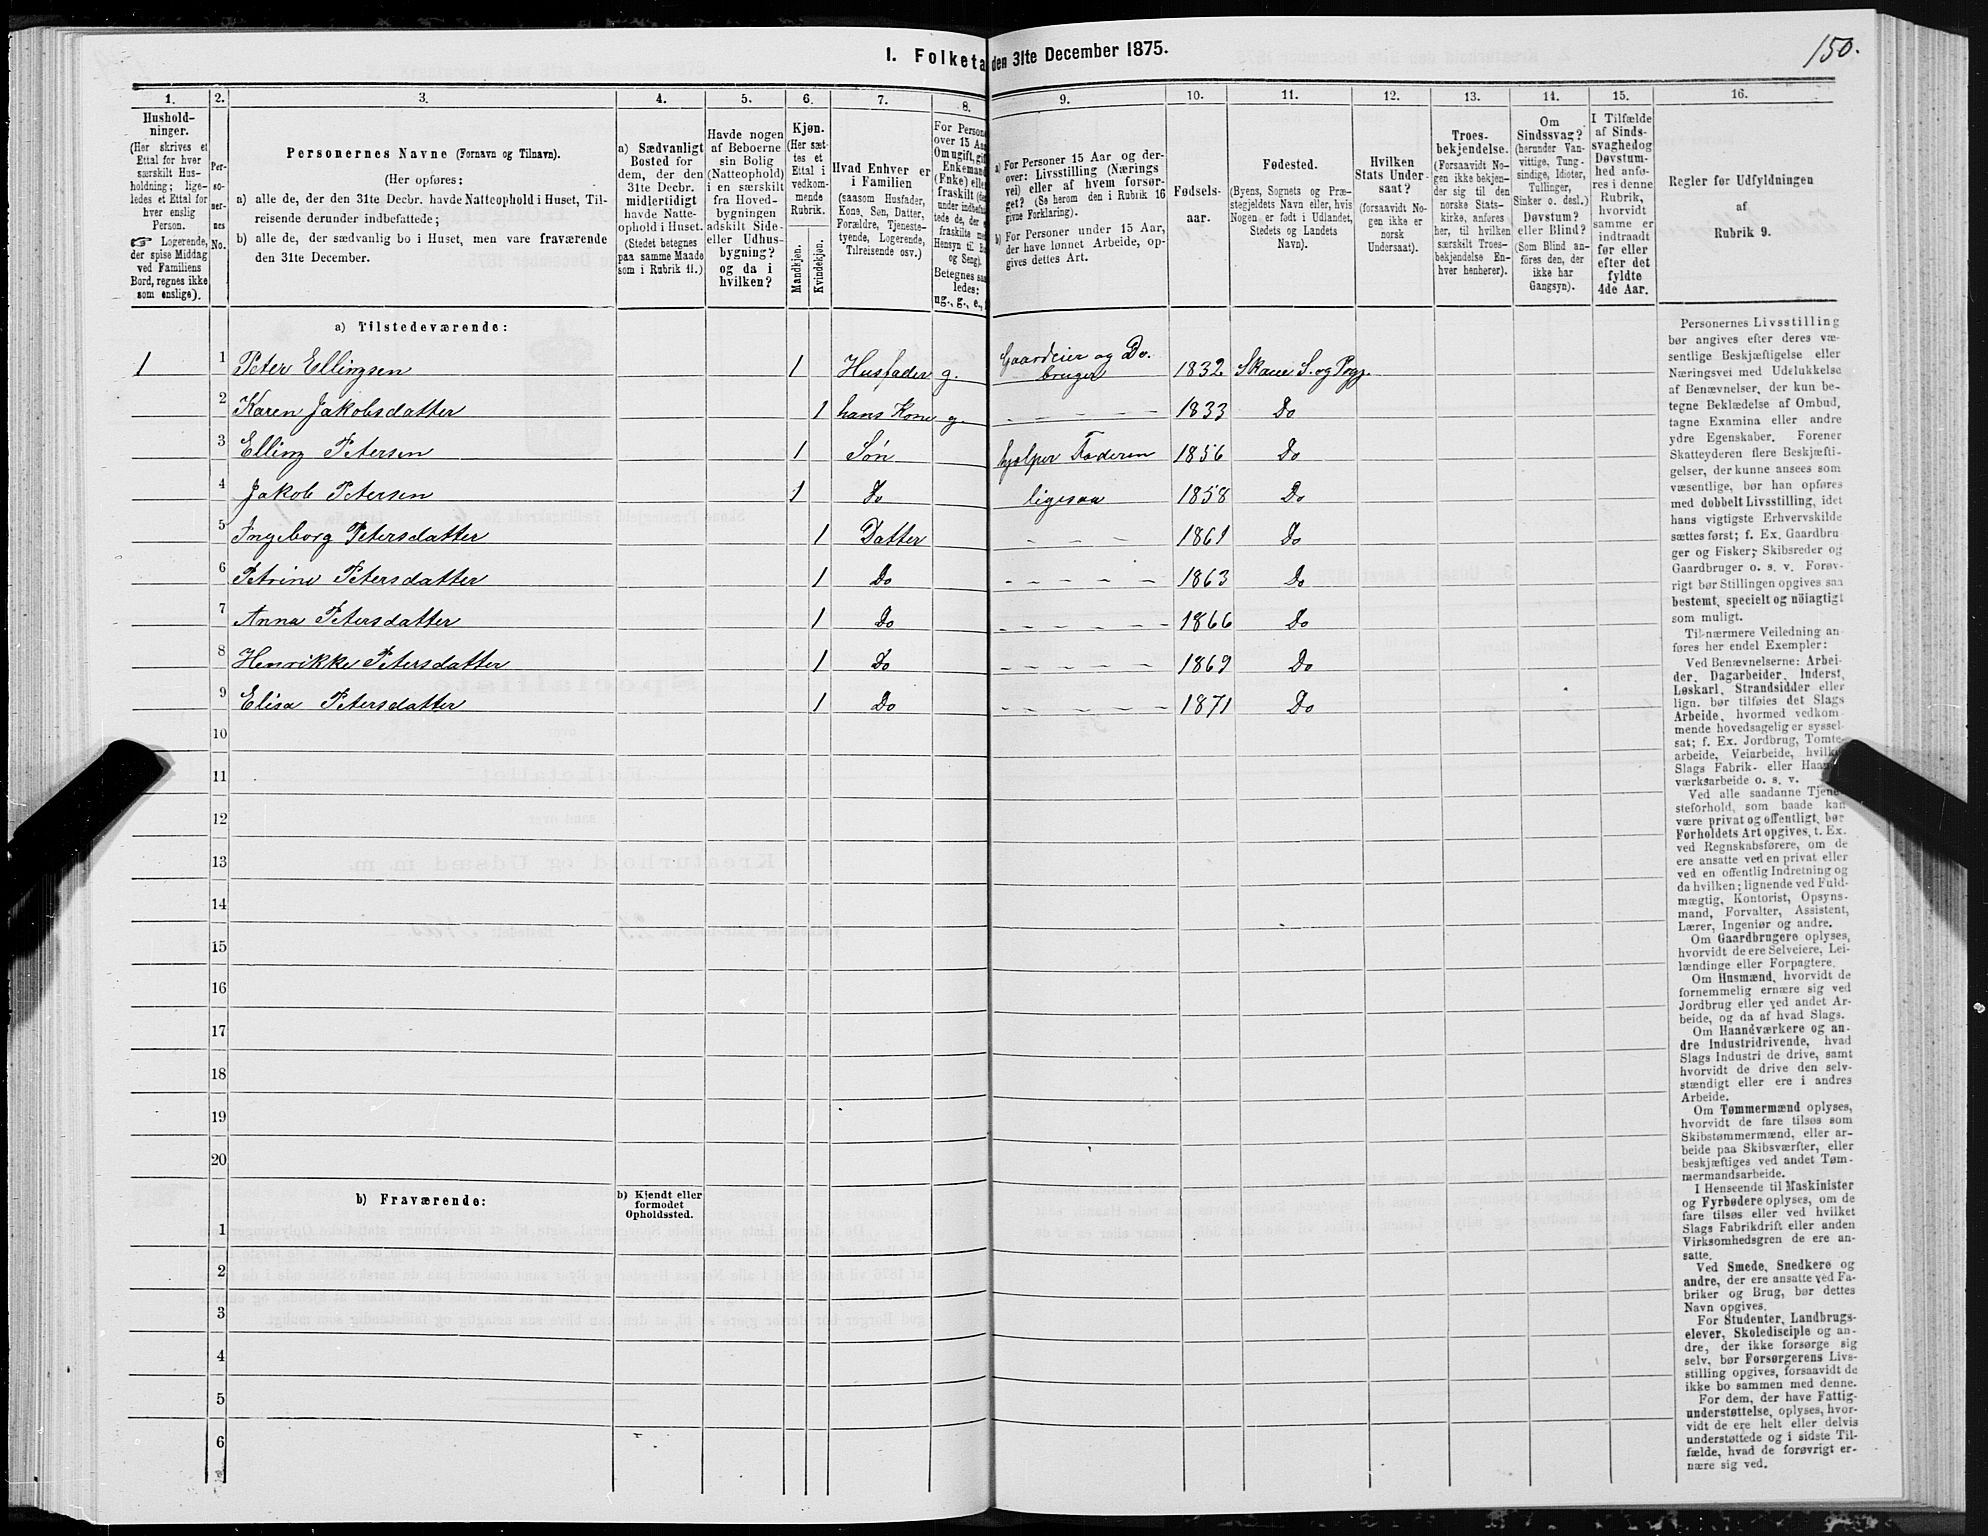 150.
I. Folketa den 31te December 1875.
1. 2. 3. 4. 5. 6. 7. 8. 9. 10. 11. 12. 13. 14. 15. 16.
Hushold-
ninger.
(Her skrives et
Ettal for hver
særskilt Hus-
holdning; lige-
ledes et Ettal for
hver enslig
Person.
☞ Logerende,
der spise Middag
ved Familiens
Bord, regnes ikke
som enslige).
Per-
so-
ner-
nes
No.
Personernes Navne (Fornavn og Tilnavn).
(Her opføres:
a) alle de, der den 31te Decbr. havde Natteophold i Huset, Til-
reisende derunder indbefattede;
b) alle de, der sædvanlig bo i Huset, men vare fraværende
den 31te December.
a) Sædvanligt
Bosted for
dem, der den
31te Decbr.
midlertidigt
havde Natte-
ophold i Huset.
(Stedet betegnes
paa samme Maade
som i Rubrik 11.)
Havde nogen
af Beboerne
sin Bolig
(Natteophold)
i en særskilt
fra Hoved-
bygningen
adskilt Side-
eller Udhus-
bygning?
og da i
hvilken?
Kjøn.
(Her sæt-
tes et
Ettal i
vedkom-
mende
Rubrik.
Mandkjøn.
Kvindekjøn.
Hvad Enhver er
i Familien
(saasom Husfader,
Kone, Søn, Datter,
Forældre, Tjeneste-
tyende, Logerende,
Tilreisende osv.)
For Persone
over 15 Aar
Om ugift, gift
Enkemand
(Enke) elle
fraskilt (de
under indbefat
tede de, der e
fraskilte m
Hensyn til B
og Seng).
Betegnes saa
ledes:
ug., g., e.,
a) For Personer 15 Aar og der-
over: Livsstilling (Nærings
vei) eller af hvem forsør-
get? (Se herom den i Rubrik 16
givne Forklaring).
b) For Personer under 15 Aar,
der have lønnet Arbeide, op-
gives dettes Art.
Fødsels-
aar.
Fødested.
(Byens, Sognets og Præ-
stegjeldets Navn eller, hvis
Nogen er født i Udlandet,
Stedets og Landets
Navn).
Hvilken
Stats Under-
saat?
(forsaavidt No-
gen ikke er
norsk
Undersaat).
Troes-
bekjendelse.
(Forsaavidt No-
gen ikke bekjen-
der sig til den
norske Stats-
kirke, anføres
her, til hvilken
særskilt Troes-
bekjendelse En-
hver henhører).
Om
Sindssvag?
(herunder Van-
vittige, Tung-
sindige, Idioter,
Tullinger,
Sinker o. desl.)
Døvstum?
eller Blind?
(Som Blind an-
føres den, der
ikke har
Gangsyn).
I Tilfælde
af Sinds-
svaghed og
Døvstum-
hed anfø-
res i denne
Rubrik,
hvorvidt
samme er
indtraadt
før eller
efter det
fyldte
4de Aar.
Regler før Udfyldningen
af
Rubrik 9.
a) Tilstedeværende:
1 1 Peter Ellingsen 1 Husfader g. Gaardeier og Do. bruger 1832 Skaue S. og Pgj.
2 Karen Jakobsdatter 1 hans Kone g. - - - - 1833 Do
3 Elling Petersen 1 Søn hjelper Faderen 1856 Do
4 Jakob Petersen 1 Do ligesaa 1858 Do
5 Ingeborg Petersdatter 1 Datter - - - 1861 Do
6 Petrine Petersdatter 1 Do - - - - - 1863 Do
7 Anna Petersdatter 1 Do - - - - - 1866 Do
8 Henrikke Petersdatter 1 Do - - - - - 1869 Do
9 Elisa Petersdatter 1 Do - - - - - 1871 Do
10
11
12
13
14
15
16
17
18
19
20
b) Fraværende:
b) Kjendt eller
formodet
Opholdssted.
1
2
3
4
5
6
Personernes Livsstilling
bør angives efter deres væ-
sentlige Beskjæftigelse eller
Næringsvei med Udelukkelse
af Benævnelser, der kun be-
tegne Beklædelse af Ombud,
tagne Examina eller andre
ydre Egenskaber. Forener
Skatteyderen flere Beskjæfti-
gelser, der kunne ansees som
væsentlige, bør han opføres
med dobbelt Livsstilling, idet
hans vigtigste Erhvervskilde
sættes først; f. Ex. Gaardbru-
ger og Fisker; Skibsreder og
Gaardbruger o. s. v. Forøv-
rigt bør Stillingen opgives saa
bestemt, specielt og nöiagtigt
som muligt.
Til nærmere Veiledning an-
føres her endel Exempler:
Ved Benævnelserne: Arbei-
der, Dagarbeider, Inderst,
Løskarl, Strandsidder eller
lign. bør tilføies det Slags
Arbeide, hvormed vedkom-
mende hovedsagelig er syssel-
sat; f. Ex. Jordbrug, Tomte-
arbeide, Veiarbeide, hvilke
Slags Fabrik- eller Haand-
værksarbeide o. s. v.
Ved alle saadanne Tjene-
steforhold, som baade kan
være privat og offentligt, bør
Forholdets Art opgives, t. Ex.
ved Regnskabsførere, om de
ere ansatte ved en privat eller
ved en offentlig Indretning og
da hvilken; lignende ved Fuld-
mægtig, Kontorist, Opsyns-
mand, Forvalter, Assistent,
Lærer, Ingeniør og andre.
Om Gaardbrugere oplyses,
hvorvidt de ere Selveiere, Lei-
lændinge eller Forpagtere.
Om Husmænd, hvorvidt de
fornemmelig ernære sig ved
Jordbrug eller ved andet Ar-
beide, og da af hvad Slags.
Om Haandværkere og an-
dre Industridrivende, hvad
Slags Industri de drive, samt
hvorvidt de drive den selv-
stændigt eller ere i andres
Arbeide.
Om Tømmermænd oplyses,
hvorvidt de fare tilsøs som
Skibstømmermænd, eller ar-
beide paa Skibsværfter, eller
beskjæftiges ved andet Tøm-
mermandsarbeide.
I Henseende til Maskinister
og Fyrbødere oplyses, om de
fare tilsøs eller ved hvilket
Slags Fabrikdrift eller anden
Virksomhedsgren de ere an-
satte.
Ved Smede, Snedkere og
andre, der ere ansatte ved Fa-
briker og Brug, bør dettes
Navn opgives.
For Studenter, Landbrugs-
elever, Skoledisciple og an-
dre, der ikke forsørge sig
selv, bør Forsørgerens Livs-
stilling opgives, forsaavidt de
ikke bo sammen med denne.
For dem, der have Fattig-
understøttelse, oplyses, hvor-
vidt de ere helt eller delvis
understøttede og i sidste Til-
fælde, hvad de forøvrigt er-
nære sig ved.